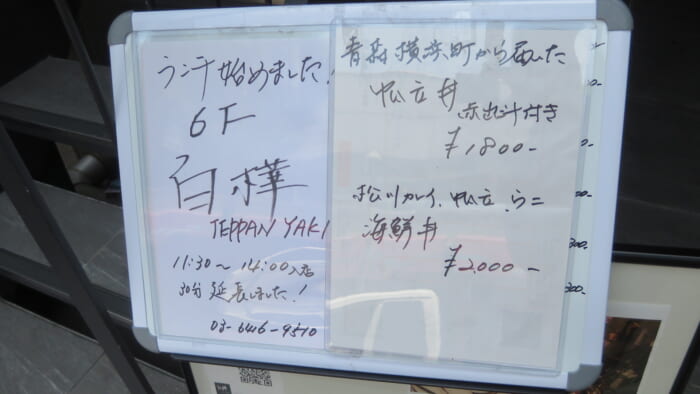 ランチ始めました!
6F
白樺
TEPPAN YAKI
11:30～14:00入店
30分延長しました!
03-6416-9510
青森横浜町から届いた
帆立丼
赤出汁付き
¥1800-
松川カレイ、帆立、うに
海鮮丼
¥2,000-